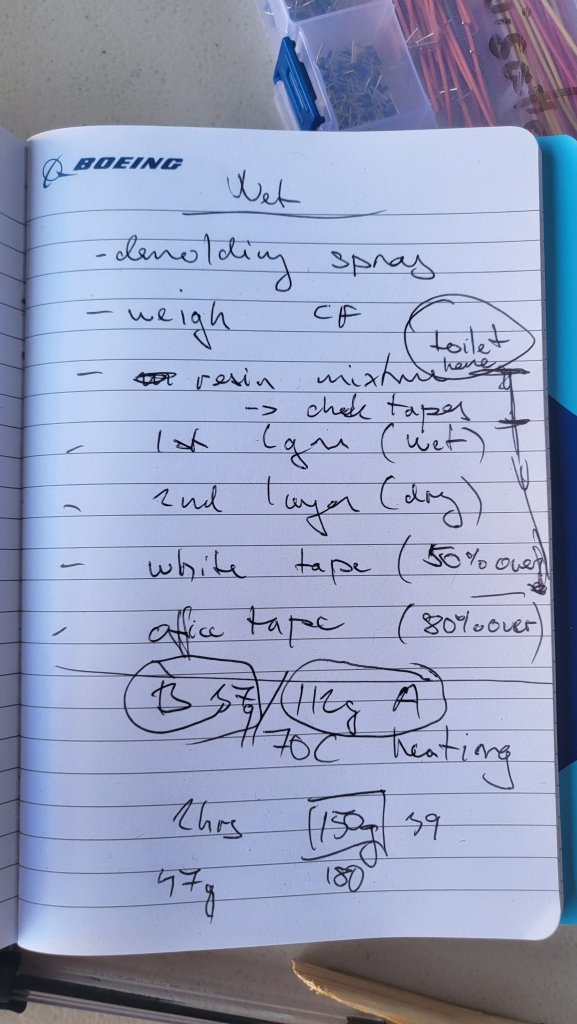 BOEING
Wet
- demolding spray
- weigh CF
toilet
here
- resin mixture
-> check tapes
- 1st layer (wet)
- 2nd layer (dry)
- white tape (50% over
- office tape (80% over)
B 37g / 112g A
70C heating
2hrs 150g 39
47g 180